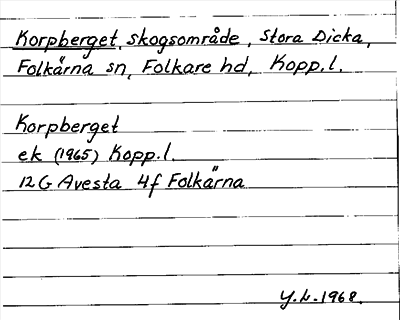 Korpberget, skogsområde, Stora Dicka,
Folkärna sn, Folkare hd, Kopp.l.
Korpberget
ek (1965) Kopp.l.
12G Avesta 4f Folkärna
Y.L.1968.